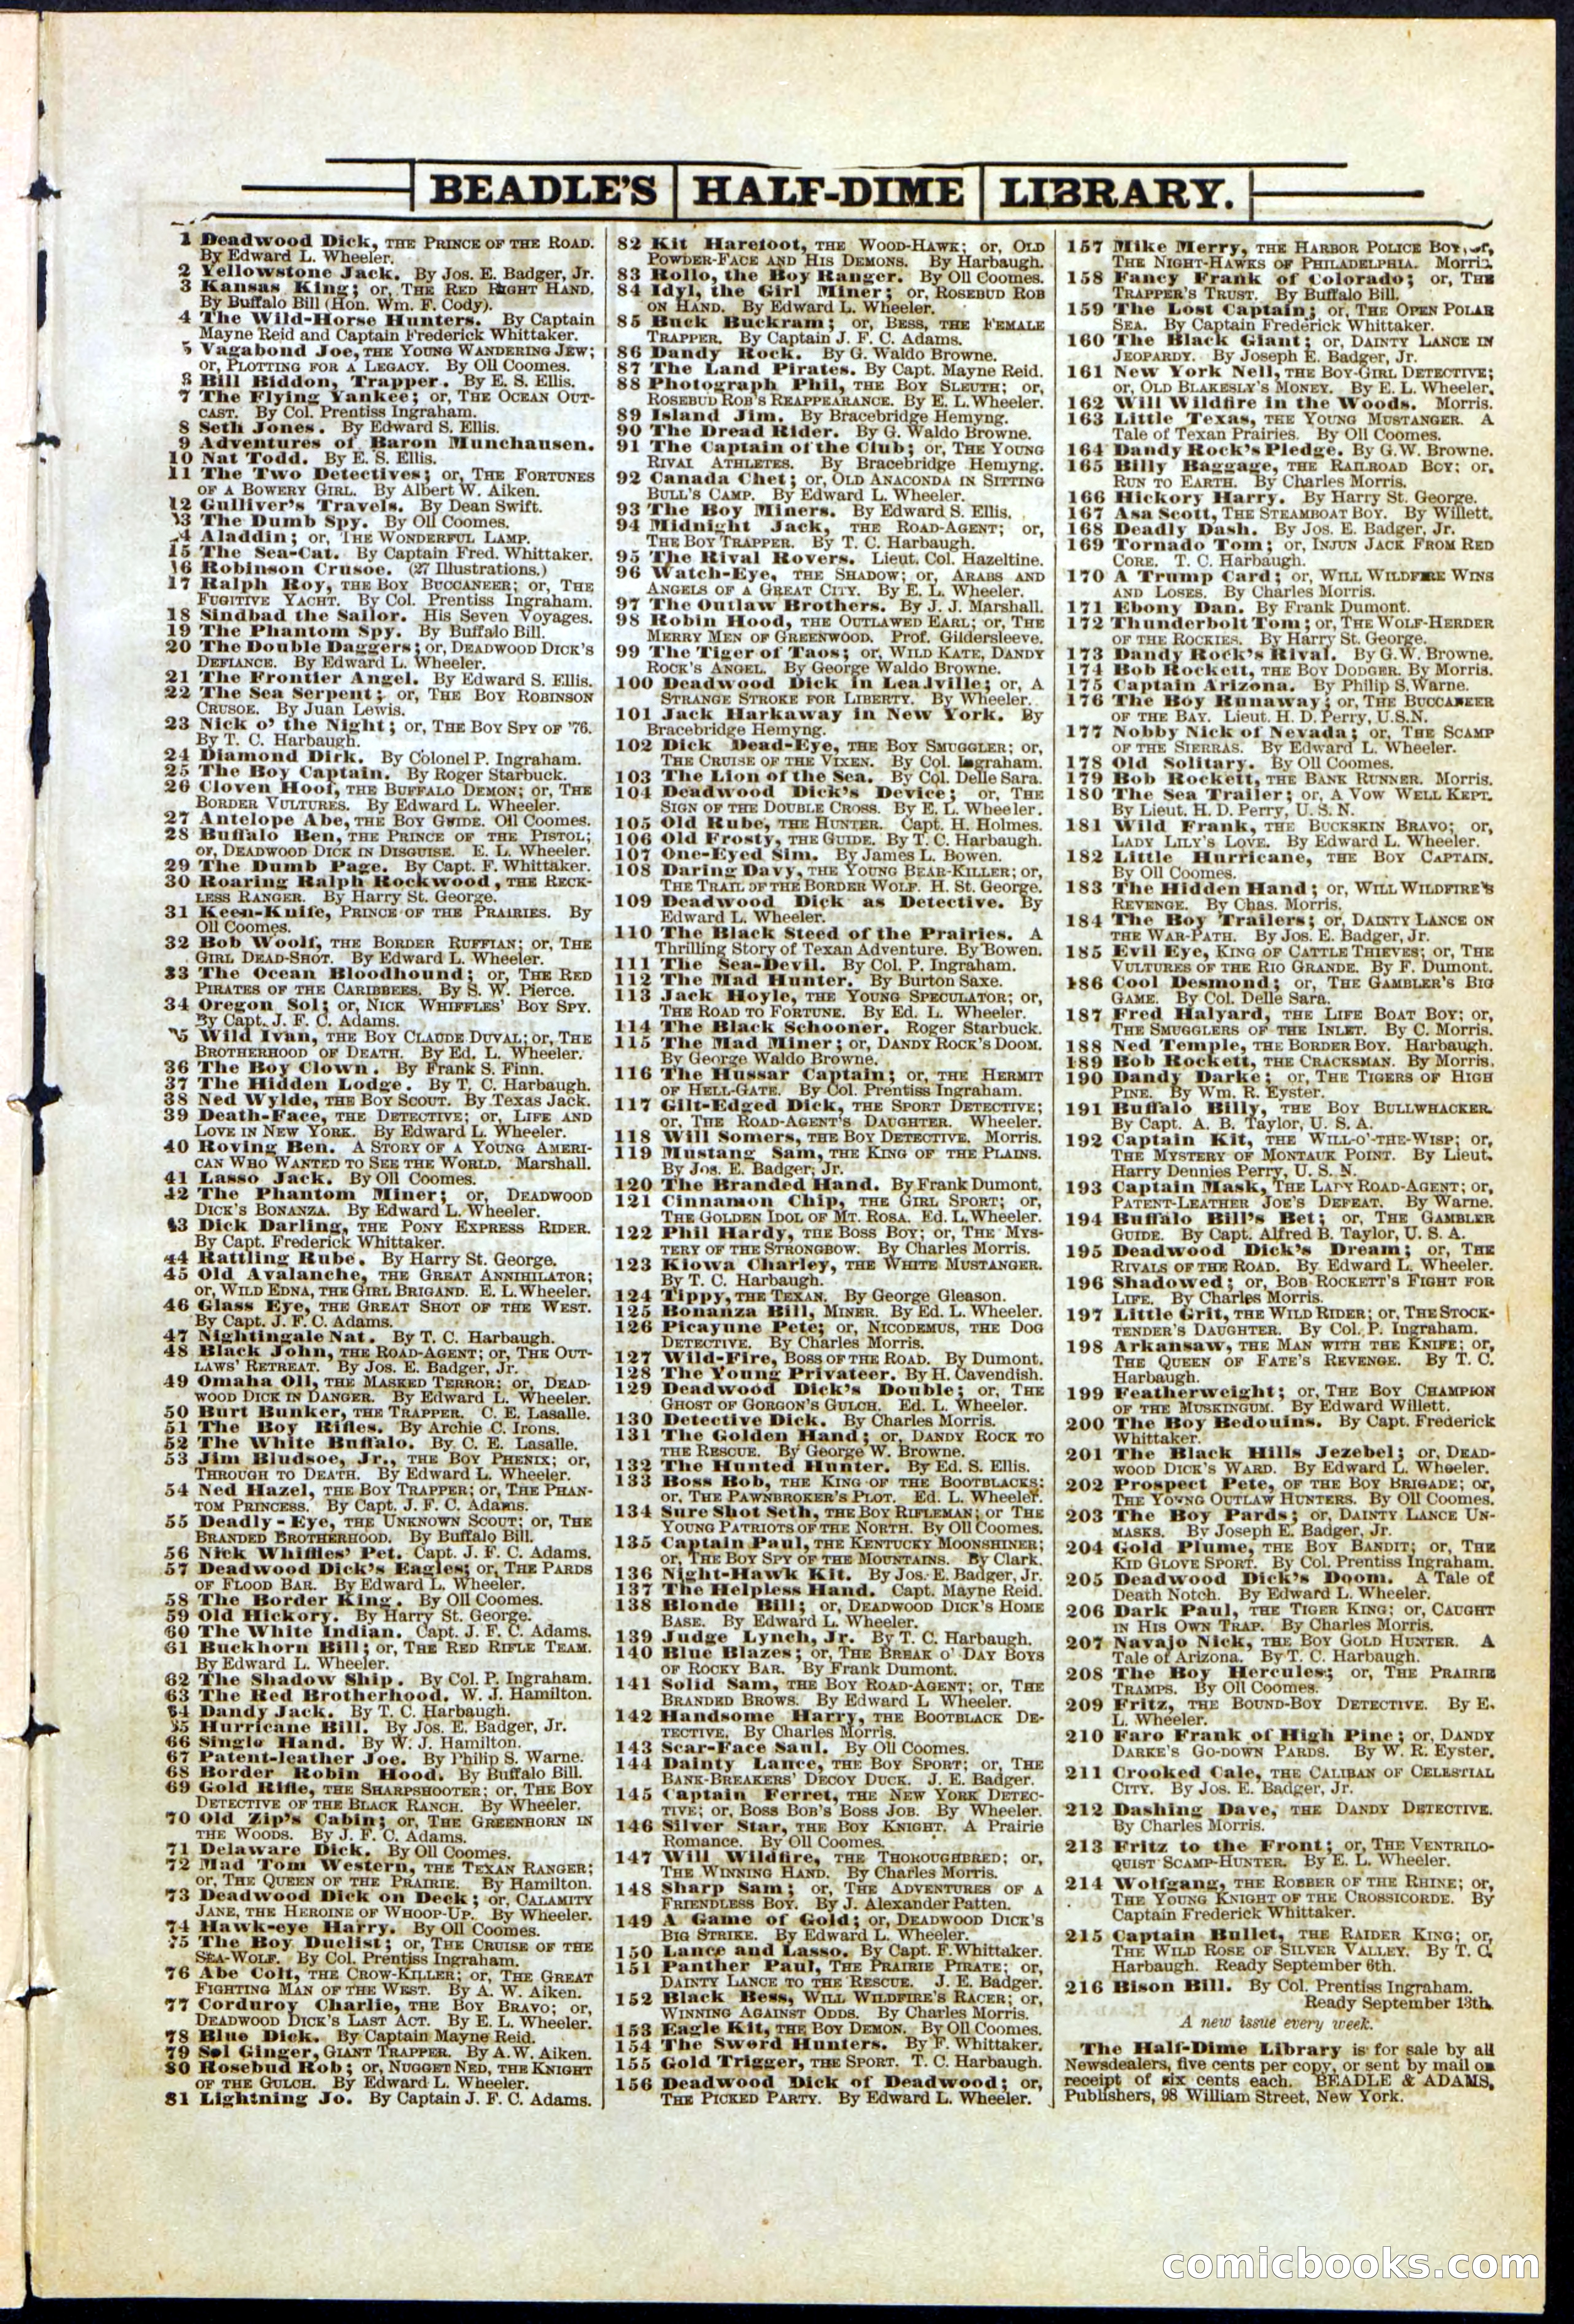 BEADLE'S HALF-DIME LIBRARY.
1 Deadwood Dick, THE PRINCE OF THE ROAD.
By Edward L. Wheeler.
2 Yellowstone Jack. By Jos. E. Badger, Jr.
3 Kansas King; or, THE RED RIGHT HAND.
By Buffalo Bill (Hon. Wm. F. Cody).
4 The Wild-Horse Hunters. By Captain
Mayne Reid and Captain Frederick Whittaker.
5 Vagabond Joe, THE YOUNG WANDERING JEW;
or, PLOTTING FOR A LEGACY. By Oll Coomes.
Bill Biddon, Trapper. By E. S. Ellis.
7 The Flying Yankee; or, THE OCEAN OUT-
CAST. By Col. Prentiss Ingraham.
8 Seth Jones. By Edward S. Ellis.
9 Adventures of Baron Munchausen.
10 Nat Todd. By E. S. Ellis.
11 The Two Detectives; or, THE FORTUNES
OF A BOWERY GIRL. By Albert W. Aiken.
12 Gulliver's Travels. By Dean Swift.
13 The Dumb Spy. By Oll Coomes.
4 Aladdin; or, THE WONDERFUL LAMP.
15 The Sea-Cat. By Captain Fred. Whittaker.
16 Robinson Crusoe. (27 Illustrations.)
17 Ralph Roy, THE BOY BUCCANEER; or, THE
FUGITIVE YACHT. By Col. Prentiss Ingraham.
18 Sindbad the Sailor. His Seven Voyages.
19 The Phantom Spy. By Buffalo Bill.
20 The Double Daggers; or, DEADWOOD DICK'S
DEFIANCE. By Edward L. Wheeler.
21 The Frontier Angel. By Edward S. Ellis.
22 The Sea Serpent; or, THE BOY ROBINSON
CRUSOE. By Juan Lewis.
23 Nick o' the Night; or, THE BOY SPY OF '76.
By T. C. Harbaugh.
24 Diamond Dirk. By Colonel P. Ingraham.
25 The Boy Captain. By Roger Starbuck.
26 Cloven Hoof, THE BUFFALO DEMON; or, THE
BORDER VULTURES. By Edward L. Wheeler.
27 Antelope Abe, THE BOY GUIDE. Oll Coomes.
28 Buffalo Ben, THE PRINCE OF THE PISTOL;
or, DEADWOOD DICK IN DISGUISE. E. L. Wheeler.
29 The Dumb Page. By Capt. F. Whittaker.
30 Roaring Ralph Rockwood, THE RECK-
LESS RANGER. By Harry St. George.
31 Keen-Knife, PRINCE OF THE PRAIRIES. By
Oll Coomes.
32 Bob Woolf, THE BORDER RUFFIAN; or, THE
GIRL DEAD-SHOT. By Edward L. Wheeler.
33 The Ocean Bloodhound; or, THE RED
PIRATES OF THE CARIBBEES. By S. W. Pierce.
34 Oregon Sol; or, NICK WHIFFLES' BOY SPY.
By Capt. J. F. C. Adams.
35 Wild Ivan, THE BOY CLAUDE DUVAL; or, THE
BROTHERHOOD OF DEATH. By Ed. L. Wheeler.
36 The Boy Clown. By Frank S. Finn.
37 The Hidden Lodge. By T. C. Harbaugh.
38 Ned Wylde, THE BOY SCOUT. By Texas Jack.
39 Death-Face, THE DETECTIVE; or, LIFE AND
LOVE IN NEW YORK. By Edward L. Wheeler.
40 Roving Ben. A STORY OF A YOUNG AMERI-
CAN WHO WANTED TO SEE THE WORLD. Marshall.
41 Lasso Jack. By Oll Coomes.
42 The Phantom Miner; or, DEADWOOD
DICK'S BONANZA. By Edward L. Wheeler.
43 Dick Darling, THE PONY EXPRESS RIDER.
By Capt. Frederick Whittaker.
44 Rattling Rube. By Harry St. George.
45 Old Avalanche, THE GREAT ANNIHILATOR;
or, WILD EDNA, THE GIRL BRIGAND. E. L. Wheeler.
46 Glass Eye, THE GREAT SHOT OF THE WEST.
By Capt. J. F. C. Adams.
47 Nightingale Nat. By T. C. Harbaugh.
48 Black John, THE ROAD-AGENT; or, THE OUT-
LAWS' RETREAT. By Jos. E. Badger, Jr.
49 Omaha Oll, THE MASKED TERROR; or, DEAD-
WOOD DICK IN DANGER. By Edward L. Wheeler.
50 Burt Bunker, THE TRAPPER. C. E. Lasalle.
51 The Boy Rifles. By Archie C. Irons.
52 The White Buffalo. By C. E. Lasalle.
53 Jim Bludsoe, Jr., THE BOY PHENIX; or,
THROUGH TO DEATH. By Edward L. Wheeler.
54 Ned Hazel, THE BOY TRAPPER; or, THE PHAN-
TOM PRINCESS. By Capt. J. F. C. Adams.
55 Deadly-Eye, THE UNKNOWN SCOUT; or, THE
BRANDED BROTHERHOOD. By Buffalo Bill.
56 Nick Whiffles' Pet. Capt. J. F. C. Adams.
57 Deadwood Dick's Eagles; or, THE PARDS
OF FLOOD BAR. By Edward L. Wheeler.
58 The Border King. By Oll Coomes.
59 Old Hickory. By Harry St. George.
60 The White Indian. Capt. J. F. C. Adams.
61 Buckhorn Bill; or, THE RED RIFLE TEAM.
By Edward L. Wheeler.
62 The Shadow Ship. By Col. P. Ingraham.
63 The Red Brotherhood. W. J. Hamilton.
64 Dandy Jack. By T. C. Harbaugh.
65 Hurricane Bill. By Jos. E. Badger, Jr.
66 Single Hand. By W. J. Hamilton.
67 Patent-leather Joe. By Philip S. Warne.
68 Border Robin Hood. By Buffalo Bill.
69 Gold Rifle, THE SHARPSHOOTER; or, THE BOY
DETECTIVE OF THE BLACK RANCH. By Wheeler.
70 Old Zip's Cabin; or, THE GREENHORN IN
THE WOODS. By J. F. C. Adams.
71 Delaware Dick. By Oll Coomes.
72 Mad Tom Western, THE TEXAN RANGER;
or, THE QUEEN OF THE PRAIRIE. By Hamilton.
73 Deadwood Dick on Deck; or, CALAMITY
JANE, THE HEROINE OF WHOOP-UP. By Wheeler.
74 Hawk-eye Harry. By Oll Coomes.
75 The Boy Duelist; or, THE CRUISE OF THE
SEA-WOLF. By Col. Prentiss Ingraham.
76 Abe Colt, THE CROW-KILLER; or, THE GREAT
FIGHTING MAN OF THE WEST. By A. W. Aiken.
77 Corduroy Charlie, THE BOY BRAVO; or,
DEADWOOD DICK'S LAST ACT. By E. L. Wheeler.
78 Blue Dick. By Captain Mayne Reid.
79 Sol Ginger, GIANT TRAPPER. By A. W. Aiken.
80 Rosebud Rob; or, NUGGET NED, THE KNIGHT
OF THE GULCH. By Edward L. Wheeler.
81 Lightning Jo. By Captain J. F. C. Adams.
82 Kit Harefoot, THE WOOD-HAWK; or, OLD
POWDER-FACE AND HIS DEMONS. By Harbaugh.
83 Rollo, the Boy Ranger. By Oll Coomes.
84 Idyl, the Girl Miner; or, ROSEBUD ROB
ON HAND. By Edward L. Wheeler.
85 Buck Buckram; or, BESS, THE FEMALE
TRAPPER. By Captain J. F. C. Adams.
86 Dandy Rock. By G. Waldo Browne.
87 The Land Pirates. By Capt. Mayne Reid.
88 Photograph Phil, THE BOY SLEUTH; or,
ROSEBUD ROB'S REAPPEARANCE. By E. L. Wheeler.
89 Island Jim. By Bracebridge Hemyng.
90 The Dread Rider. By G. Waldo Browne.
91 The Captain of the Club; or, THE YOUNG
RIVAL ATHLETES. By Bracebridge Hemyng.
92 Canada Chet; or, OLD ANACONDA IN SITTING
BULL'S CAMP. By Edward L. Wheeler.
93 The Boy Miners. By Edward S. Ellis.
94 Midnight Jack, THE ROAD-AGENT; or,
THE BOY TRAPPER. By T. C. Harbaugh.
95 The Rival Rovers. Lieut. Col. Hazeltine.
96 Watch-Eye, THE SHADOW; or, ARABS AND
ANGELS OF A GREAT CITY. By E. L. Wheeler.
97 The Outlaw Brothers. By J. J. Marshall.
98 Robin Hood, THE OUTLAWED EARL; or, THE
MERRY MEN OF GREENWOOD. Prof. Gildersleeve.
99 The Tiger of Taos; or, WILD KATE, DANDY
ROCK'S ANGEL. By George Waldo Browne.
100 Deadwood Dick in Leadville; or, A
STRANGE STROKE FOR LIBERTY. By Wheeler.
101 Jack Harkaway in New York. By
Bracebridge Hemyng.
102 Dick Dead-Eye, THE BOY SMUGGLER; or,
THE CRUISE OF THE VIXEN. By Col. Ingraham.
103 The Lion of the Sea. By Col. Delle Sara.
104 Deadwood Dick's Device; or, THE
SIGN OF THE DOUBLE CROSS. By E. L. Wheeler.
105 Old Rube, THE HUNTER. Capt. H. Holmes.
106 Old Frosty, THE GUIDE. By T. C. Harbaugh.
107 One-Eyed Sim. By James L. Bowen.
108 Daring Davy, THE YOUNG BEAR-KILLER; or,
THE TRAIL OF THE BORDER WOLF. H. St. George.
109 Deadwood Dick as Detective. By
Edward L. Wheeler.
110 The Black Steed of the Prairies. A
Thrilling Story of Texan Adventure. By Bowen.
111 The Sea-Devil. By Col. P. Ingraham.
112 The Mad Hunter. By Burton Saxe.
113 Jack Hoyle, THE YOUNG SPECULATOR; or,
THE ROAD TO FORTUNE. By Ed. L. Wheeler.
114 The Black Schooner. Roger Starbuck.
115 The Mad Miner; or, DANDY ROCK'S DOOM.
By George Waldo Browne.
116 The Hussar Captain; or, THE HERMIT
OF HELL-GATE. By Col. Prentiss Ingraham.
117 Gilt-Edged Dick, THE SPORT DETECTIVE;
or, THE ROAD-AGENT'S DAUGHTER. Wheeler.
118 Will Somers, THE BOY DETECTIVE. Morris.
119 Mustang Sam, THE KING OF THE PLAINS.
By Jos. E. Badger, Jr.
120 The Branded Hand. By Frank Dumont.
121 Cinnamon Chip, THE GIRL SPORT; or,
THE GOLDEN IDOL OF MT. ROSA. Ed. L. Wheeler.
122 Phil Hardy, THE BOSS BOY; or, THE MYS-
TERY OF THE STRONGBOW. By Charles Morris.
123 Kiowa Charley, THE WHITE MUSTANGER.
By T. C. Harbaugh.
124 Tippy, THE TEXAN. By George Gleason.
125 Bonanza Bill, MINER. By Ed. L. Wheeler.
126 Picayune Pete; or, NICODEMUS, THE DOG
DETECTIVE. By Charles Morris.
127 Wild-Fire, BOSS OF THE ROAD. By Dumont.
128 The Young Privateer. By H. Cavendish.
129 Deadwood Dick's Double; or, THE
GHOST OF GORGON'S GULCH. Ed. L. Wheeler.
130 Detective Dick. By Charles Morris.
131 The Golden Hand; or, DANDY ROCK TO
THE RESCUE. By George W. Browne.
132 The Hunted Hunter. By Ed. S. Ellis.
133 Boss Bob, THE KING OF THE BOOTBLACKS;
or, THE PAWNBROKER'S PLOT. Ed. L. Wheeler.
134 Sure Shot Seth, THE BOY RIFLEMAN; or THE
YOUNG PATRIOTS OF THE NORTH. By Oll Coomes.
135 Captain Paul, THE KENTUCKY MOONSHINER;
or, THE BOY SPY OF THE MOUNTAINS. By Clark.
136 Night-Hawk Kit. By Jos. E. Badger, Jr.
137 The Helpless Hand. Capt. Mayne Reid.
138 Blonde Bill; or, DEADWOOD DICK'S HOME
BASE. By Edward L. Wheeler.
139 Judge Lynch, Jr. By T. C. Harbaugh.
140 Blue Blazes; or, THE BREAK O' DAY BOYS
OF ROCKY BAR. By Frank Dumont.
141 Solid Sam, THE BOY ROAD-AGENT; or, THE
BRANDED BROWS. By Edward L Wheeler.
142 Handsome Harry, THE BOOTBLACK DE-
TECTIVE. By Charles Morris.
143 Scar-Face Saul. By Oll Coomes.
144 Dainty Lance, THE BOY SPORT; or, THE
BANK-BREAKERS' DECOY DUCK. J. E. Badger.
145 Captain Ferret, THE NEW YORK DETEC-
TIVE; or, BOSS BOB'S BOSS JOB. By Wheeler.
146 Silver Star, THE BOY KNIGHT. A Prairie
Romance. By Oll Coomes.
147 Will Wildfire, THE THOROUGHBRED; or,
THE WINNING HAND. By Charles Morris.
148 Sharp Sam; or, THE ADVENTURES OF A
FRIENDLESS BOY. By J. Alexander Patten.
149 A Game of Gold; or, DEADWOOD DICK'S
BIG STRIKE. By Edward L. Wheeler.
150 Lance and Lasso. By Capt. F. Whittaker.
151 Panther Paul, THE PRAIRIE PIRATE; or,
DAINTY LANCE TO THE RESCUE. J. E. Badger.
152 Black Bess, WILL WILDFIRE'S RACER; or,
WINNING AGAINST ODDS. By Charles Morris.
153 Eagle Kit, THE BOY DEMON. By Oll Coomes.
154 The Sword Hunters. By F. Whittaker.
155 Gold Trigger, THE SPORT. T. C. Harbaugh.
156 Deadwood Dick of Deadwood; or,
THE PICKED PARTY. By Edward L. Wheeler.
157 Mike Merry, THE HARBOR POLICE BOY; or,
THE NIGHT-HAWKS OF PHILADELPHIA. Morris.
158 Fancy Frank of Colorado; or, THE
TRAPPER'S TRUST. By Buffalo Bill.
159 The Lost Captain; or, THE OPEN POLAR
SEA. By Captain Frederick Whittaker.
160 The Black Giant; or, DAINTY LANCE IN
JEOPARDY. By Joseph E. Badger, Jr.
161 New York Nell, THE BOY-GIRL DETECTIVE;
or, OLD BLAKESLY'S MONEY. By E. L. Wheeler.
162 Will Wildfire in the Woods. Morris.
163 Little Texas, THE YOUNG MUSTANGER. A
Tale of Texan Prairies. By Oll Coomes.
164 Dandy Rock's Pledge. By G. W. Browne.
165 Billy Baggage, THE RAILROAD BOY; or,
RUN TO EARTH. By Charles Morris.
166 Hickory Harry. By Harry St. George.
167 Asa Scott, THE STEAMBOAT BOY. By Willett.
168 Deadly Dash. By Jos. E. Badger, Jr.
169 Tornado Tom; or, INJUN JACK FROM RED
CORE. T. C. Harbaugh.
170 A Trump Card; or, WILL WILDFIRE WINS
AND LOSES. By Charles Morris.
171 Ebony Dan. By Frank Dumont.
172 Thunderbolt Tom; or, THE WOLF-HERDER
OF THE ROCKIES. By Harry St. George.
173 Dandy Rock's Rival. By G. W. Browne.
174 Bob Rockett, THE BOY DODGER. By Morris.
175 Captain Arizona. By Philip S. Warne.
176 The Boy Runaway; or, THE BUCCANEER
OF THE BAY. Lieut. H. D. Perry, U.S.N.
177 Nobby Nick of Nevada; or, THE SCAMP
OF THE SIERRAS. By Edward L. Wheeler.
178 Old Solitary. By Oll Coomes.
179 Bob Rockett, THE BANK RUNNER. Morris.
180 The Sea Trailer; or, A VOW WELL KEPT.
By Lieut. H. D. Perry, U. S. N.
181 Wild Frank, THE BUCKSKIN BRAVO; or,
LADY LILY'S LOVE. By Edward L. Wheeler.
182 Little Hurricane, THE BOY CAPTAIN.
By Oll Coomes.
183 The Hidden Hand; or, WILL WILDFIRE'S
REVENGE. By Chas. Morris.
184 The Boy Trailers; or, DAINTY LANCE ON
THE WAR-PATH. By Jos. E. Badger, Jr.
185 Evil Eye, KING OF CATTLE THIEVES; or, THE
VULTURES OF THE RIO GRANDE. By F. Dumont.
186 Cool Desmond; or, THE GAMBLER'S BIG
GAME. By Col. Delle Sara.
187 Fred Halyard, THE LIFE BOAT BOY; or,
THE SMUGGLERS OF THE INLET. By C. Morris.
188 Ned Temple, THE BORDER BOY. Harbaugh.
189 Bob Rockett, THE CRACKSMAN. By Morris.
190 Dandy Darke; or, THE TIGERS OF HIGH
PINE. By Wm. R. Eyster.
191 Buffalo Billy, THE BOY BULLWHACKER.
By Capt. A. B. Taylor, U. S. A.
192 Captain Kit, THE WILL-O'-THE-WISP; or,
THE MYSTERY OF MONTAUK POINT. By Lieut.
Harry Dennies Perry, U. S. N.
193 Captain Mask, THE LADY ROAD-AGENT; or,
PATENT-LEATHER JOE'S DEFEAT. By Warne.
194 Buffalo Bill's Bet; or, THE GAMBLER
GUIDE. By Capt. Alfred B. Taylor, U. S. A.
195 Deadwood Dick's Dream; or, THE
RIVALS OF THE ROAD. By Edward L. Wheeler.
196 Shadowed; or, BOB ROCKETT'S FIGHT FOR
LIFE. By Charles Morris.
197 Little Grit, THE WILD RIDER; or, THE STOCK-
TENDER'S DAUGHTER. By Col. P. Ingraham.
198 Arkansaw, THE MAN WITH THE KNIFE; or,
THE QUEEN OF FATE'S REVENGE. By T. C.
Harbaugh.
199 Featherweight; or, THE BOY CHAMPION
OF THE MUSKINGUM. By Edward Willett.
200 The Boy Bedouins. By Capt. Frederick
Whittaker.
201 The Black Hills Jezebel; or, DEAD-
WOOD DICK'S WARD. By Edward L. Wheeler.
202 Prospect Pete, OF THE BOY BRIGADE; or,
THE YOUNG OUTLAW HUNTERS. By Oll Coomes.
203 The Boy Pards; or, DAINTY LANCE UN-
MASKS. By Joseph E. Badger, Jr.
204 Gold Plume, THE BOY BANDIT; or, THE
KID GLOVE SPORT. By Col. Prentiss Ingraham.
205 Deadwood Dick's Doom. A Tale of
Death Notch. By Edward L. Wheeler.
206 Dark Paul, THE TIGER KING; or, CAUGHT
IN HIS OWN TRAP. By Charles Morris.
207 Navajo Nick, THE BOY GOLD HUNTER. A
Tale of Arizona. By T. C. Harbaugh.
208 The Boy Hercules; or, THE PRAIRIE
TRAMPS. By Oll Coomes.
209 Fritz, THE BOUND-BOY DETECTIVE. By E.
L. Wheeler.
210 Faro Frank of High Pine; or, DANDY
DARKE'S GO-DOWN PARDS. By W. R. Eyster.
211 Crooked Cale, THE CALIBAN OF CELESTIAL
CITY. By Jos. E. Badger, Jr.
212 Dashing Dave, THE DANDY DETECTIVE.
By Charles Morris.
213 Fritz to the Front; or, THE VENTRILO-
QUIST SCAMP-HUNTER. By E. L. Wheeler.
214 Wolfgang, THE ROBBER OF THE RHINE; or,
THE YOUNG KNIGHT OF THE CROSSICORDE. By
Captain Frederick Whittaker.
215 Captain Bullet, THE RAIDER KING; or,
THE WILD ROSE OF SILVER VALLEY. By T. C.
Harbaugh. Ready September 6th.
216 Bison Bill. By Col. Prentiss Ingraham.
Ready September 13th.
A new issue every week.
The Half-Dime Library is for sale by all
Newsdealers, five cents per copy, or sent by mail on
receipt of six cents each. BEADLE & ADAMS,
Publishers, 98 William Street, New York.
comicbooks.com